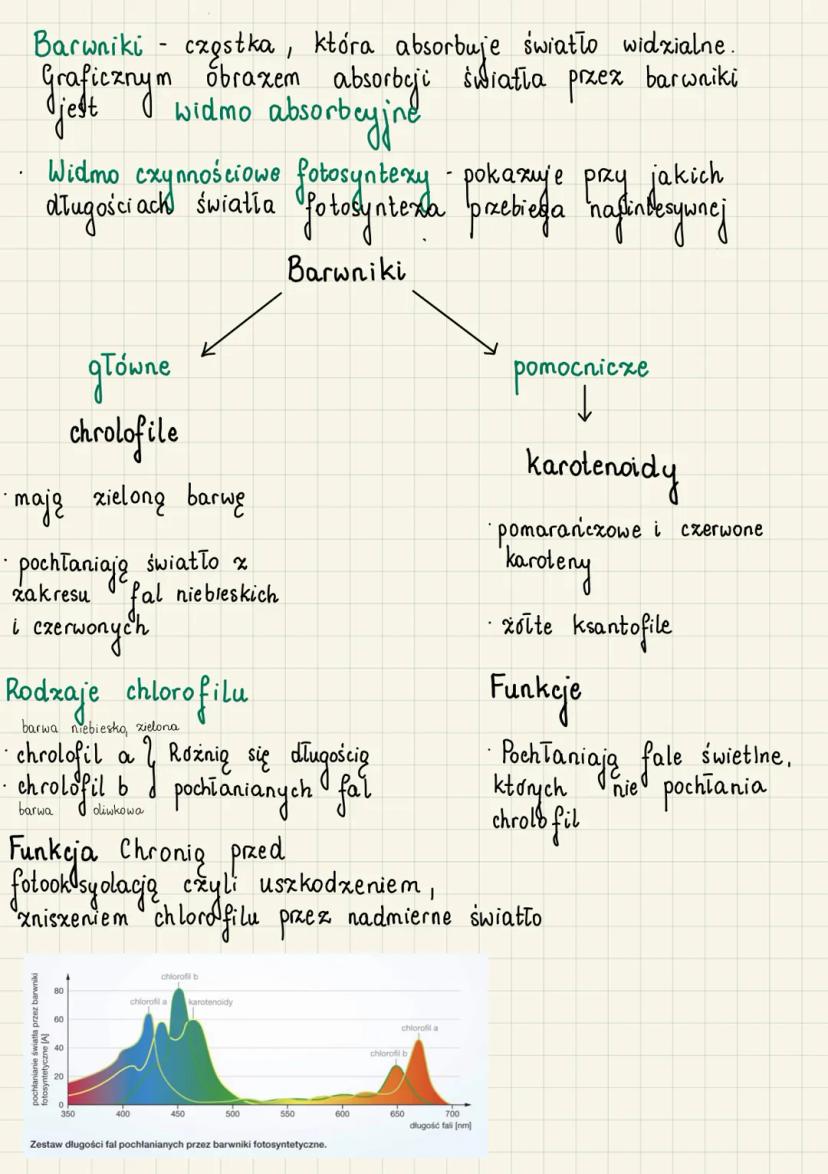 Barwniki - cząstka, która absorbuje światło widzialne.
Graficznym obrazem absorbcji światła przez barwniki
jest widmo absorbcyjne
· Widmo czynnościowe fotosyntezy - pokazuje przy jakich
długościach światła fotosynteza przebiega najintesywnej
Barwniki
główne
chrolofile
· mają zieloną barwę
· pochłaniają światło z
zakresu fal niebieskich
i czerwonych
pomocnicze
karotenoidy
· pomarańczowe i czerwone
karoteny
· żółte ksantofile
Rodzaje chlorofilu
barwa niebiesko, zielona
· chrolofil a } Różnią się długością
· chrolofil b } pochłanianych fal
barwa oliwkowa
Funkcja Chronią przed
fotooksyolacją czyli uszkodzeniem,
zniszeniem chlorofilu przez nadmierne światło
Funkcje
· Pochłaniają fale świetlne,
których nie pochłania
chrolofil
pochłanianie światła przez barwniki
fotosyntetyczne [A]
80
60
40
20
0
chlorofil b
chlorofil a
karotenoidy
chlorofil a
chlorofil b
350 400 450 500 550 600 650 700
długość fali [nm]
Zestaw długości fal pochłanianych przez barwniki fotosyntetyczne.